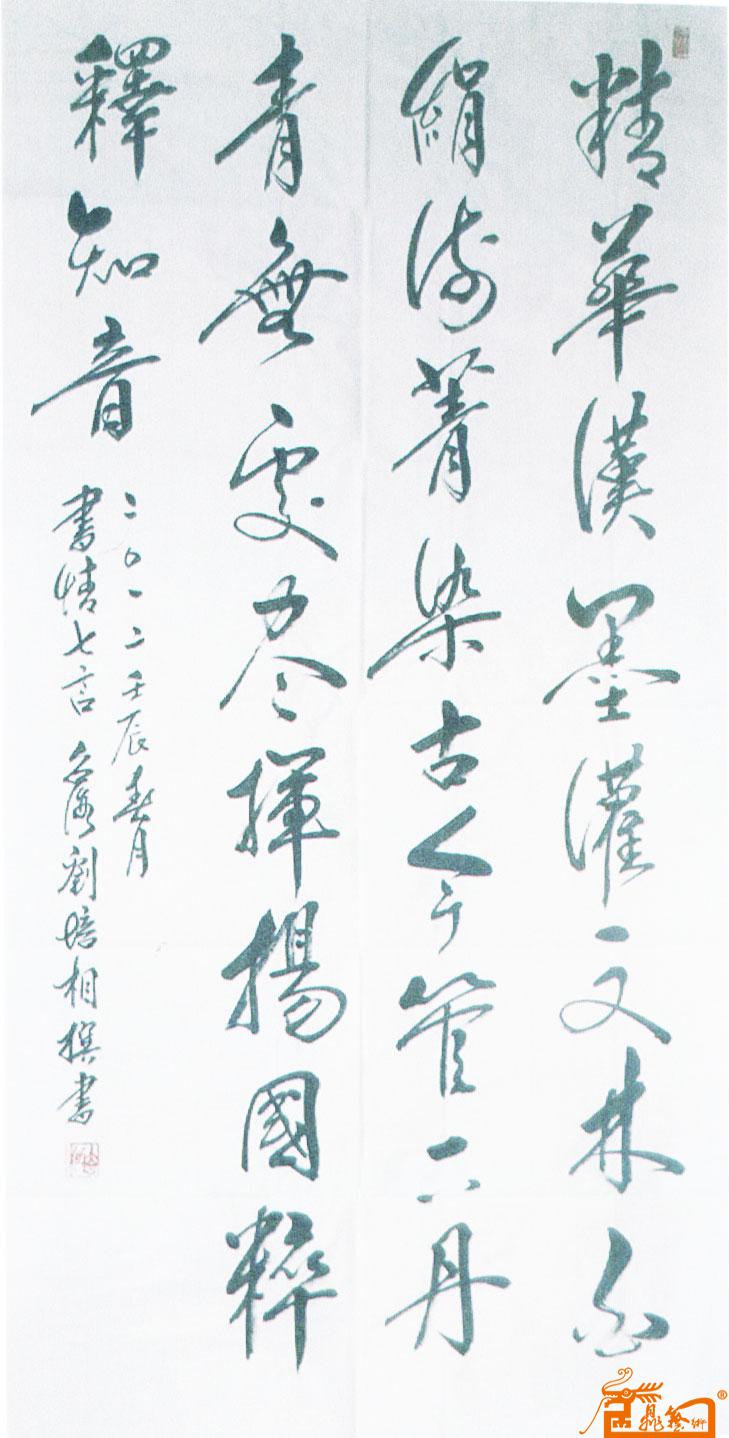 精華漢墨灌文林白
絹淌菁染古今管下丹
青無處盡揮揚國粹
釋知音
二〇一二壬辰春月
書情七言 劉培相撰書